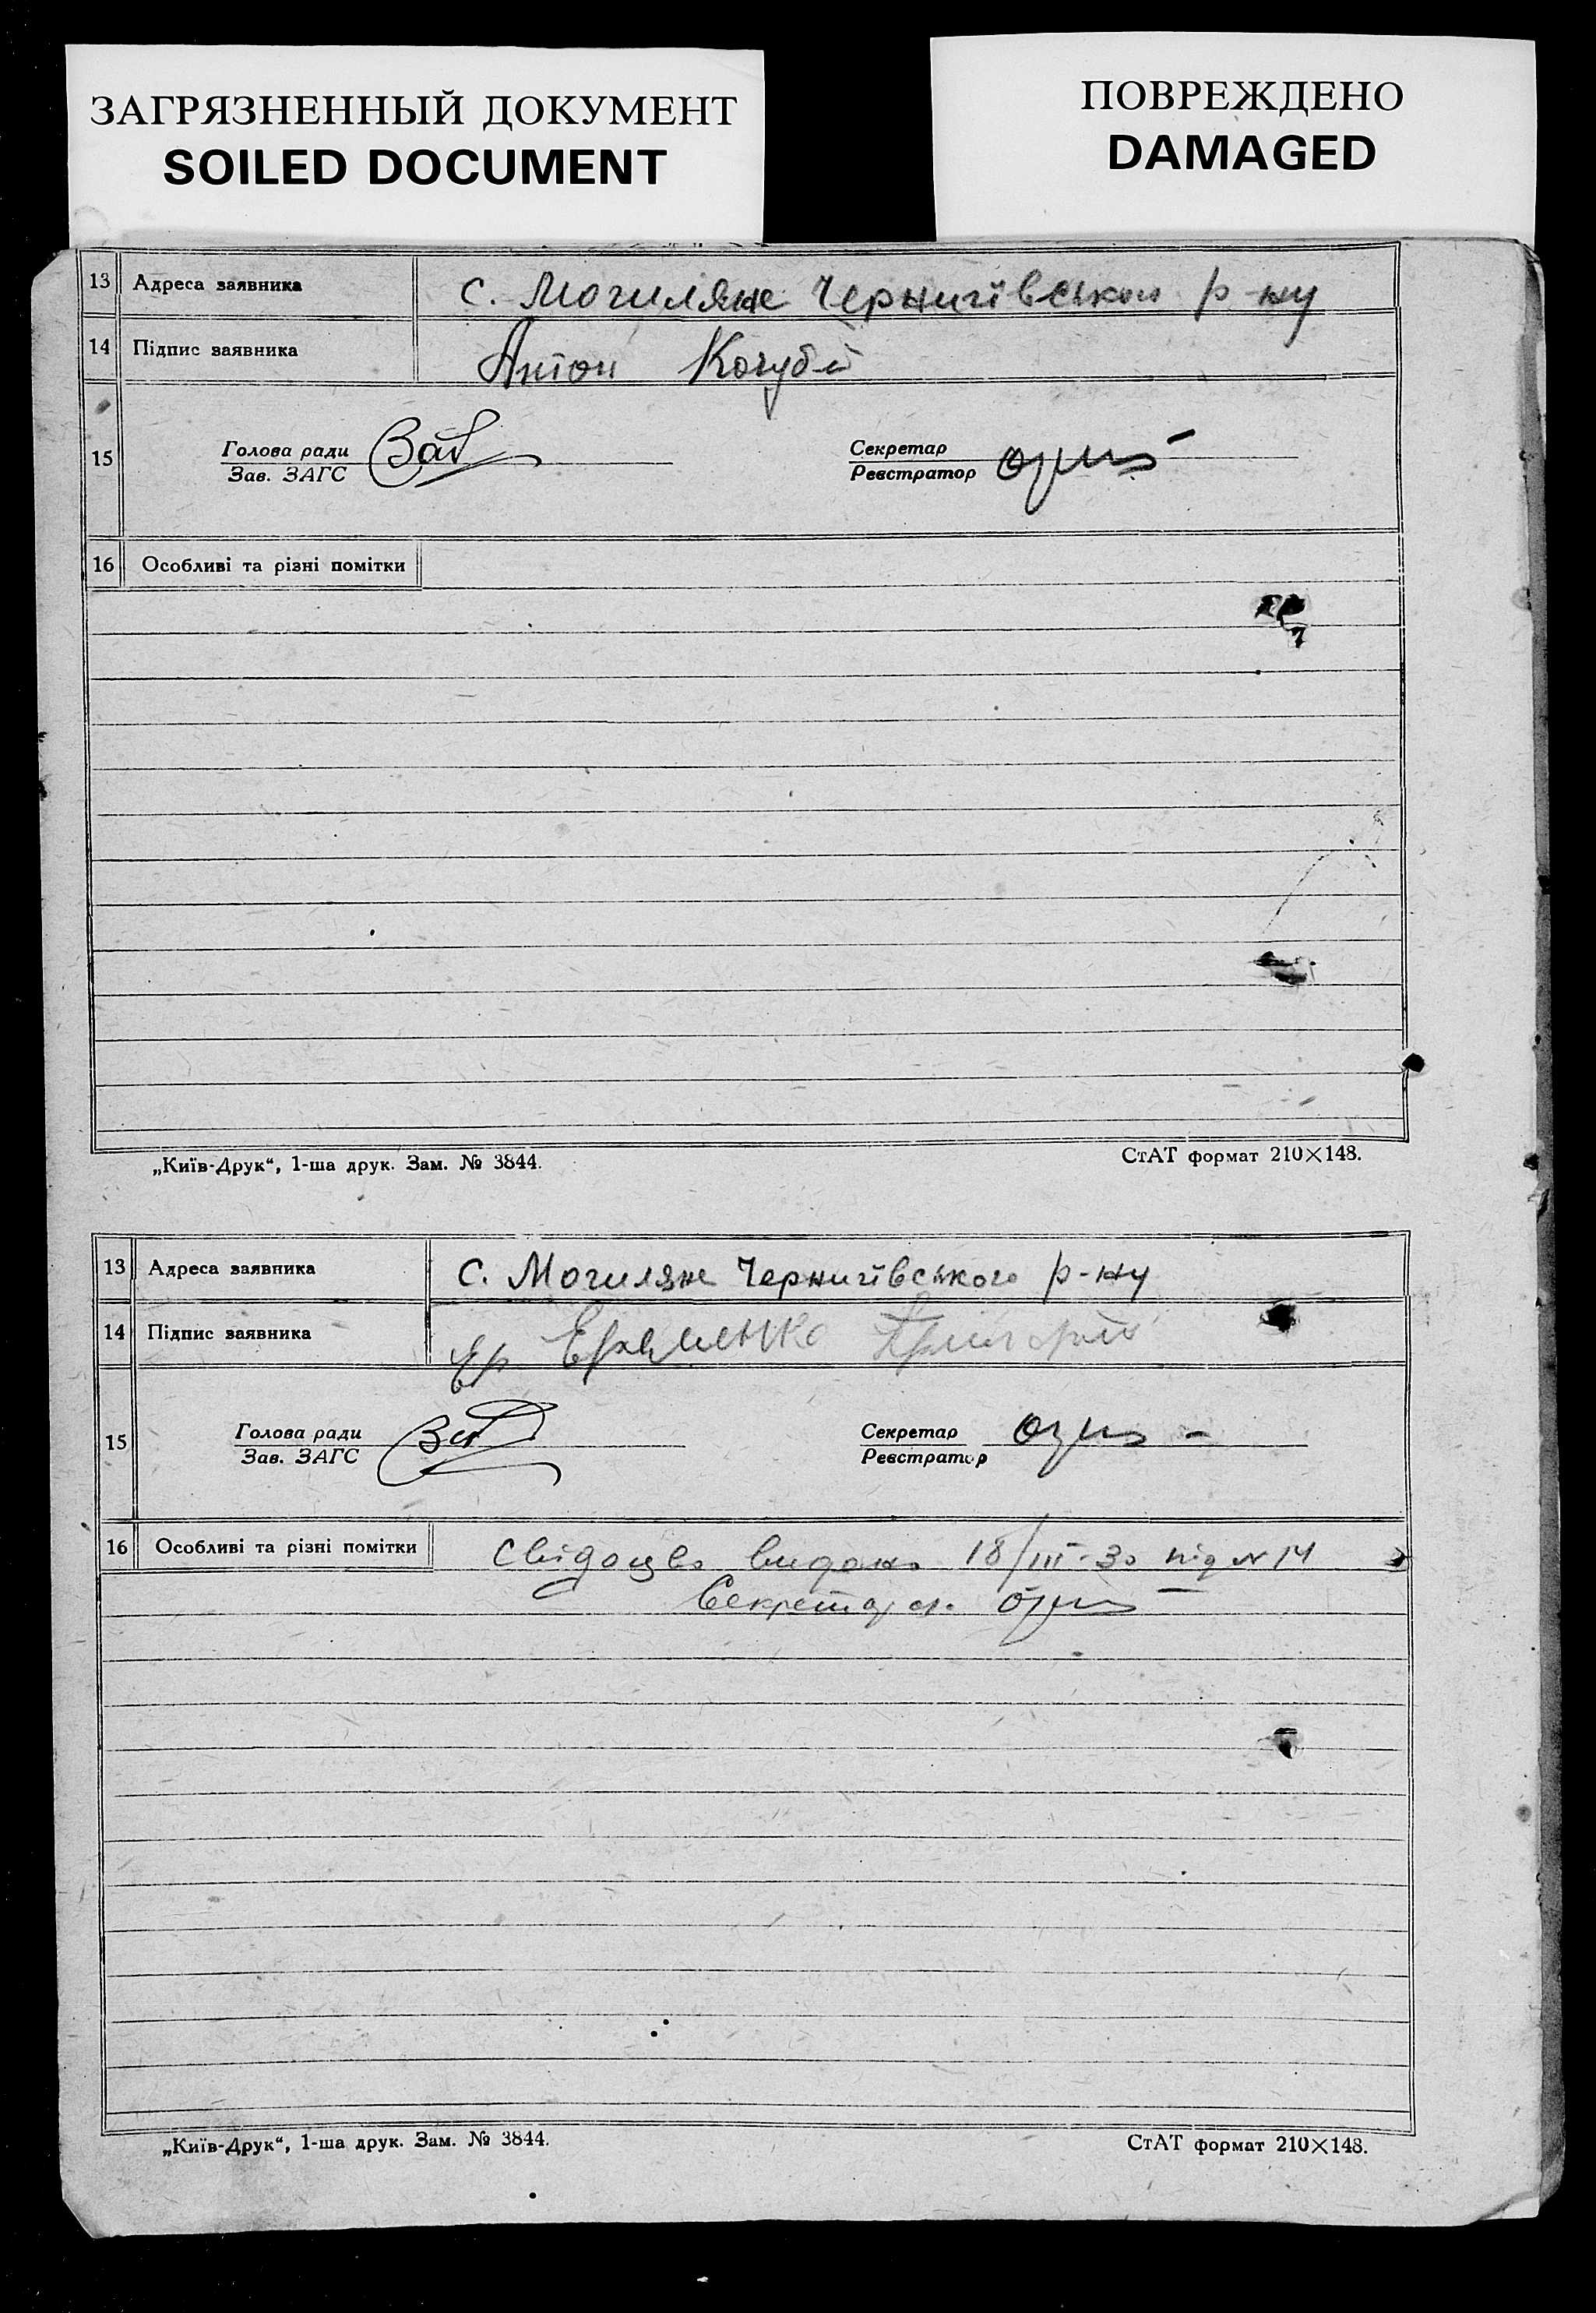 ЗАГРЯЗНЕННЫЙ ДОКУМЕНТ
SOILED DOCUMENT
ПОВРЕЖДЕНО
DAMAGED
13 Адреса заявника с. Могиляне Чернигівського р-ну
14 Підпис заявника Антон Кочубей
15 Голова ради
Зав. ЗАГС
Секретар
Реєстратор
16 Особливі та різні помітки
„Київ-Друк“, 1-ша друк. Зам. № 3844.
СтАТ формат 210×148.
13 Адреса заявника с. Могиляне Чернигівського р-ну
14 Підпис заявника
15 Голова ради
Зав. ЗАГС
Секретар
Реєстратор
16 Особливі та різні помітки свідоцво видано 18/III-30 під N 14
Секретар
„Київ-Друк“, 1-ша друк. Зам. № 3844.
СтАТ формат 210×148.